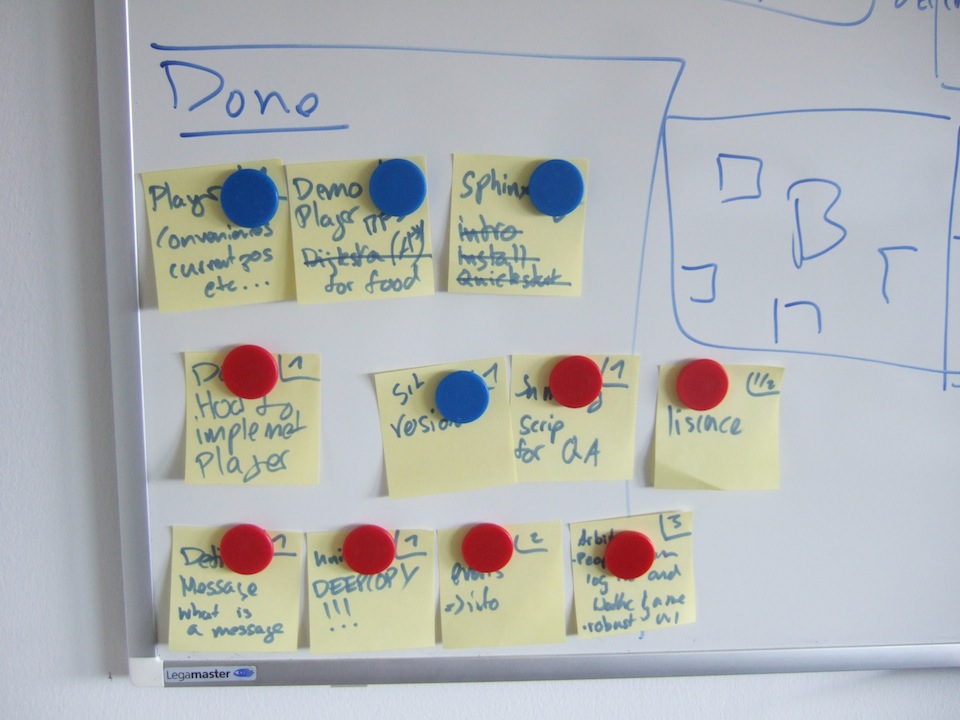 Done
Player
Convenience
current pos
etc...
Demo
Player
Dijkstra (A*)
for food
Sphinx
intro
Install
Quickstart
1
HowTo
implemet
Player
1
version
1
scrip
for QA
(1/2
lisence
1
Message
what is
a message
1
DEEPCOPY
!!!
2
=> info
3
and
game
robust
B
Legamaster